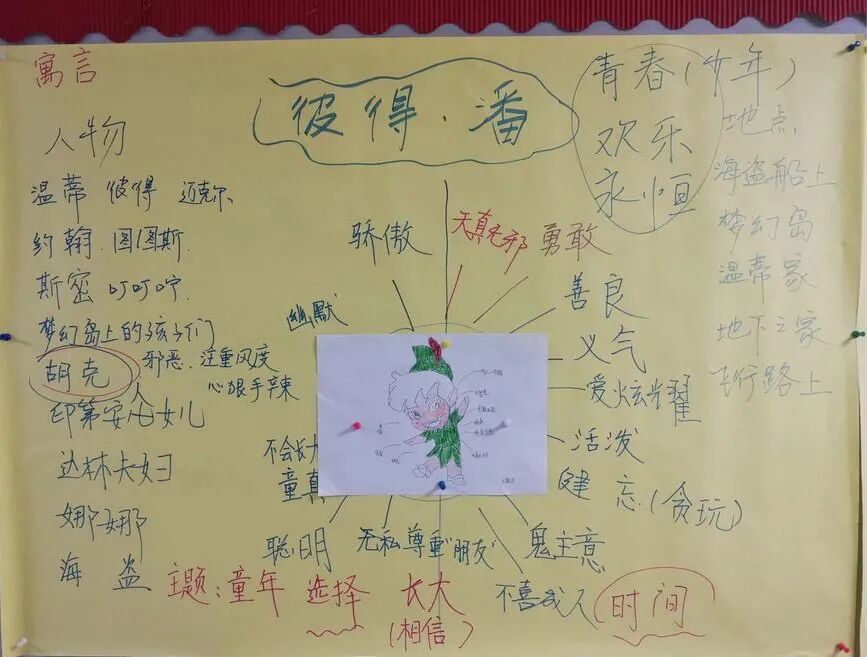 寓言
彼得·潘
青春(少年)
欢乐
永恒
人物
温蒂 彼得 迈克尔
约翰 图图斯
斯密 叮叮咛
梦幻岛上的孩子们
胡克 邪恶、注重风度
心狠手辣
印第安人女儿
达林夫妇
娜娜
海盗
地点
海盗船上
梦幻岛
温蒂家
地下之家
飞行路上
骄傲
天真无邪
勇敢
善良
义气
爱炫耀
活泼
健忘(贪玩)
鬼主意
不喜成人
幽默
不会长大
童真
聪明
无私尊重"朋友"
主题:童年 选择 长大 (时间)
(相信)